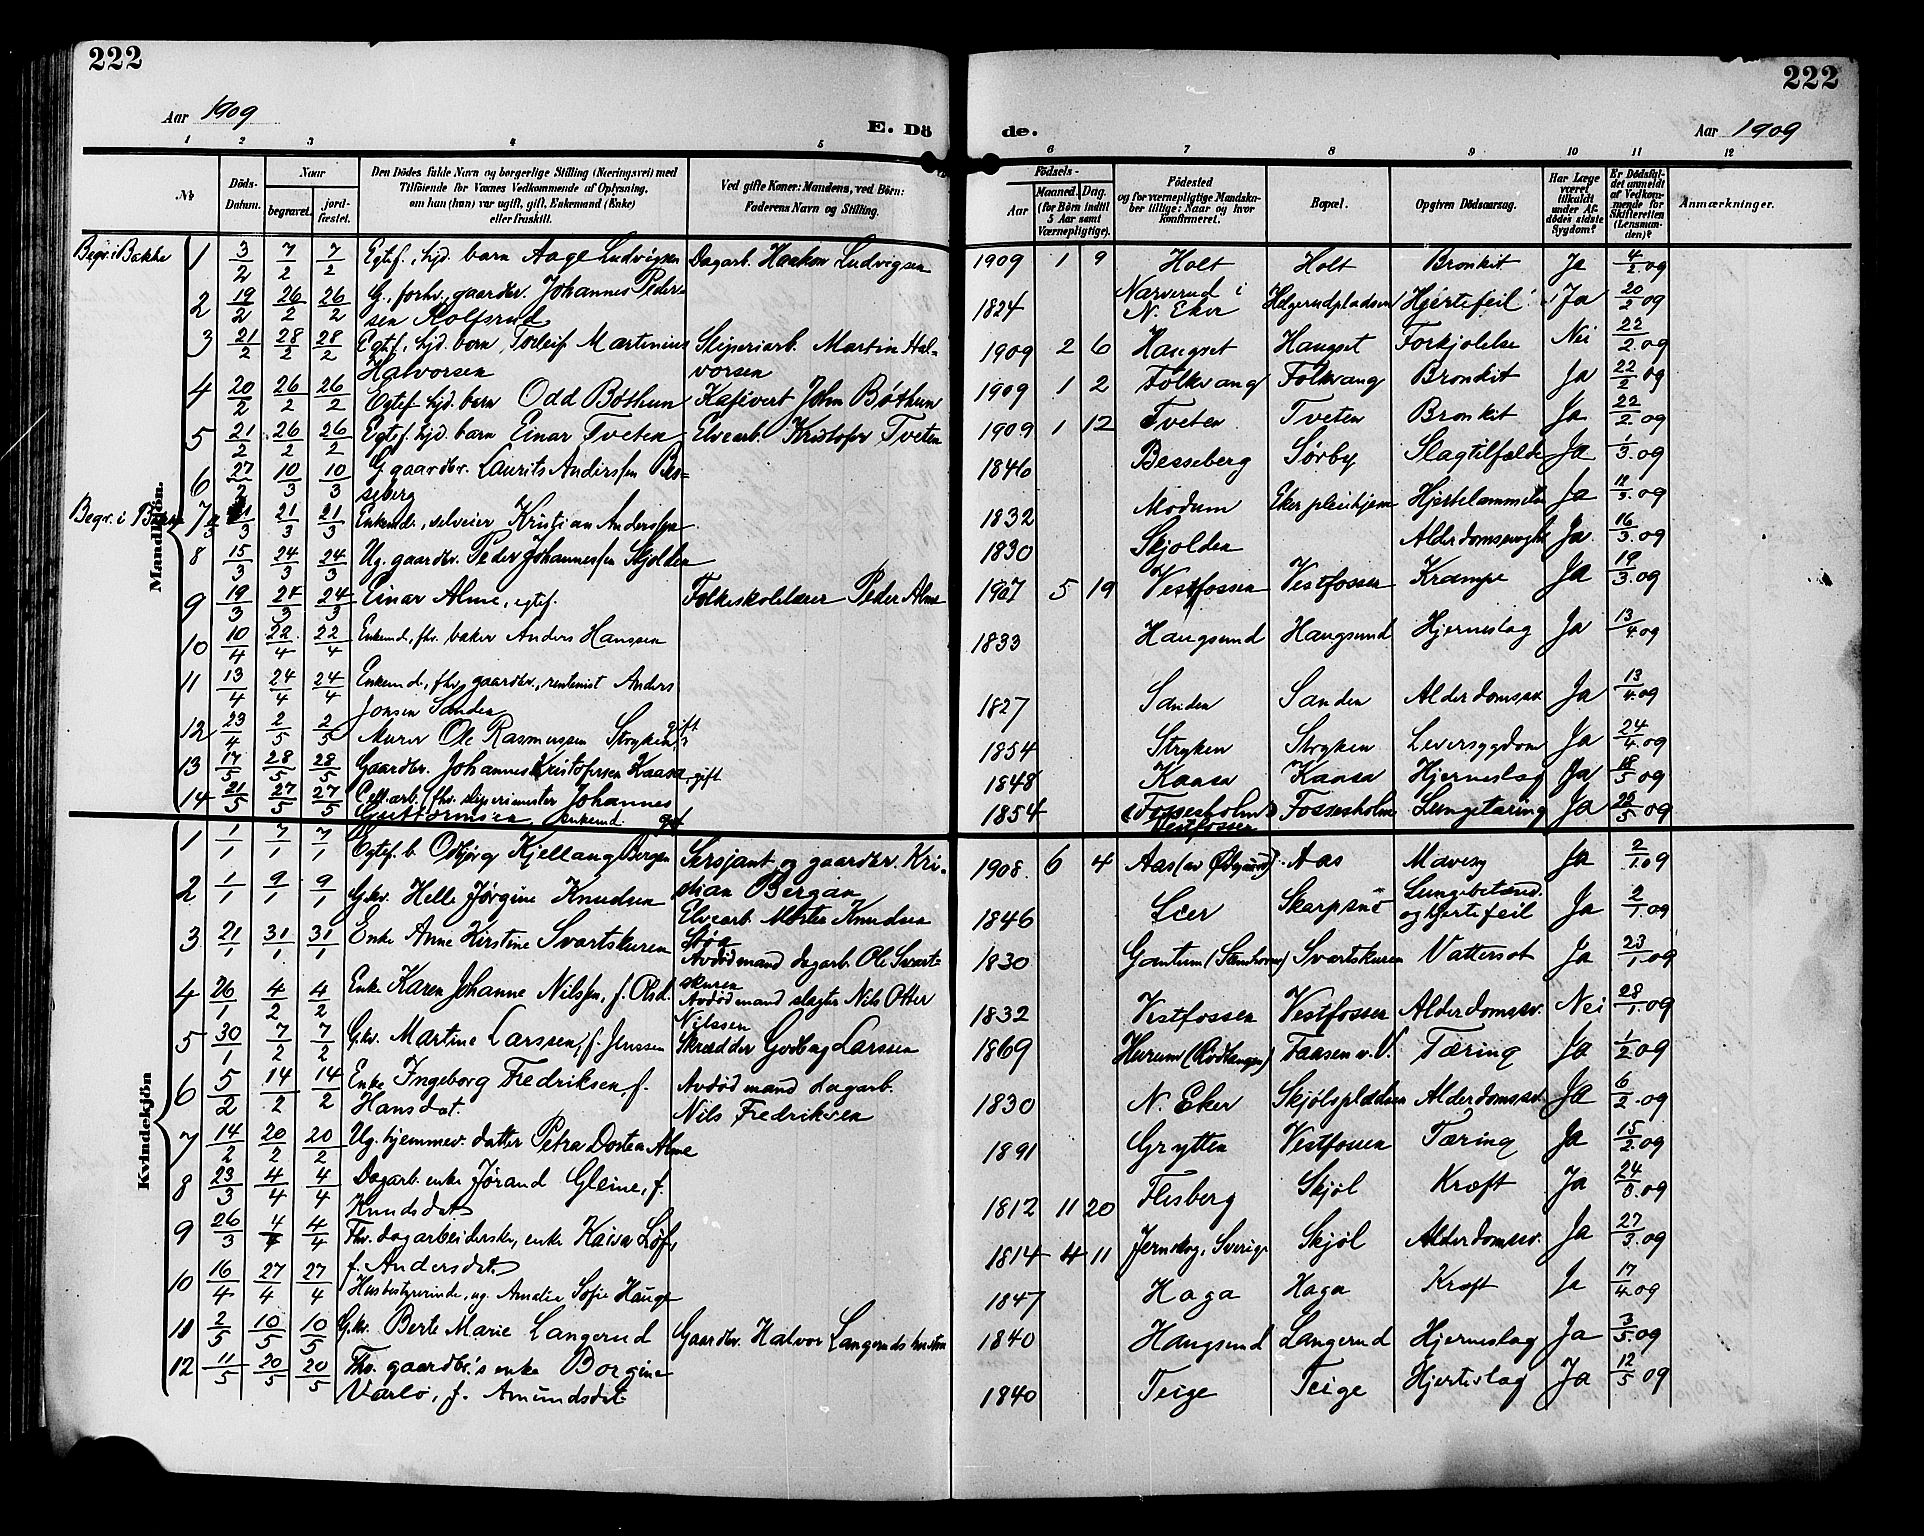 222
222
Aar 1909
E. Dö de.
Aar 1909
1 2 3 4 5 6 7 8 9 10 11 12
№
Döds-Datum.
Naar
begravet.
jordfæstet.
Den Dödes fulde Navn og borgerlige Stilling (Næringsvei) med
Tilföiende for Voxnes Vedkommende af Oplysning,
om han (hun) var ugift, gift, Enkemand (Enke)
eller fraskilt.
Ved gifte Koner: Mandens, ved Börn:
Faderens Navn og Stilling.
Födsels-
Aar
Maaned. Dag.
(for Börn indtil
5 Aar samt
Værnepligtige).
Födested
og for værnepligtige Mandskaber tillige: Naar og hvor
konfirmeret.
Bopæl.
Opgiven Dödsaarsag.
Har Læge
været
tilkaldt
under Afdödes sidste
Sygdom?
Er Dödsfaldet anmeldt
af Vedkommende for
Skifteretten
(Lensmanden)?
Anmærkninger.
Mandkjön.
Begr. i Bakke 1 3/2 7/2 7/2 Egtef., hjd. barn Aage Ludvigsen Dagarb. Haakon Ludvigsen 1909 1 9 Holt Holt Bronkit Ja 4/2.09
2 19/2 26/2 26/2 G., forhv. gaardbr. Johannes Pedersen Rolfsrud 1824 Narverud i N. Eker Helgerudpladsen Hjertefeil Ja 20/2 09
3 21/2 28/2 28/2 Egtef., hjd. barn, Torleif Martinius Halvorsen Sliperiarb. Martin Halvorsen 1909 2 6 Haugset Haugset Forkjolelse Nei 22/2.09
4 20/2 26/2 26/2 Egtef. hjd. barn Odd Bøthun Kafivert John Bøthun 1909 1 2 Folkvang Folkvang Bronkit Ja 22/2 09
5 21/2 26/2 26/2 Egtef. hjd. barn Einar Tveten Elvearb. Kristofer Tveten 1909 1 12 Tveten Tveten Bronkit Ja 22/2.09
6 27/2 10/3 10/3 G. gaardbr. Laurits Anderssen Besseberg 1846 Besseberg Sørby Slagtilfælde Ja 1/3.09
Begr. i Bakke 7 21/3 21/3 Enkemd., selveier Kristian Anderssen 1832 Modum Eker pleiehjem Ja 11/3.09
8 15/3 24/3 24/3 Ug. gaardbr. Peder Johannessen Skjolden 1830 Skjolden Ja 16/3.09
9 19/3 24/3 24/3 Einar Alme, egtef. Folkeskolelærer Peder Alme 1907 5 19 Vestfossen Vestfossen Krampe Ja 19/3.09
10 10/4 22/4 22/4 Enkemd., fhv. baker Anders Hanssen 1833 Haugsund Haugsund Hjerneslag Ja 13/4.09
11 13/4 24/4 24/4 Enkemd., fhv. gaardbr., rentenist Anders Jonsen Sanden 1827 Sanden Sanden Alderdomssv. Ja 13/4.09
12 23/4 2/5 2/5 Murer Ole Rasmussen Stryken, gift 1854 Stryken Stryken Leversygdom Ja 24/4.09
13 17/5 28/5 28/5 Gaardbr. Johannes Kristofersen Kaasa, gift 1848 Kaasa Kaasa Hjerneslag Ja 18/5 09
14 21/5 27/5 27/5 Cell.arb. (fhv. sliperimester Johannes Guttormsen enkemd. 1854 (Fossesholm) Vestfossen Fossesholm Lungetæring Ja 25/5 09
Kvindekjön
1 1/1 7/1 7/1 Egtef. b. Odbjørg Kjellaug Bergan Sersjant og gaardbr. Kristian Bergan 1908. 6 4 Aas Aas Mavesy Ja 2/1.09
2 1/1 9/1 9/1 G.kv. Helle Jørgine Knudsen Elvearb. Morten Knudsen 1846 Lier Skarpsnö Lungebetænd. og hjertefeil Ja 2/1 09
3 21/1 31/1 31/1 Enke Anne Kirstine Svartskuren Avdød mand dagarb. Ole Svartskuren 1830 Svartskuren Vattersot Ja 23/1.09
4 26/1 4/2 4/2 Enke Karen Johanne Nilssen, f. Olsd. Avdød mand slagter Nils Otter Nilssen 1832 Vestfossen Vestfossen Alderdomssv. Nei 28/1.09
5 30/1 7/2 7/2 G.kv. Martine Larssen, f. Jenssen Skrædder Gudbrg Larssen 1869 Hurum (Rødtangen) Faasen v. V. Tæring Ja 1/2 09
6 5/2 14/2 14/2 Enke Ingeborg Fredriksen, f. Hansdat. Avdød mand dagarb. Nils Fredriksen 1830 N. Eker Skjølspladsen Alderdomssv. Ja 6/2.09
7 14/2 20/2 20/2 Ug. hjemmev. datter Petra Dortea Alme 1891 Grytten Vestfossen Tæring Ja 15/2.09
8 23/3 4/4 4/4 Dagarb. enke Jørand Gleine, f. Knudsdat. 1812 11 20 Flesberg Skjøl Kræft Ja 24/3.09
9 26/3 4/4 4/4 Fhv. dagarbeiderske, enke Kaisa Løf, f. Andersdat. 1814 4 11 Jernskog, Sverige Skjøl Alderdomssv. Ja 27/3.09
10 16/4 27/4 27/4 Husbestyrerinde, ug. Amalie Sofie Hauge 1847 Haga Haga Kræft Ja 17/4.09
11 2/5 10/5 10/5 G.kv. Berte Marie Langerud Gaardbr. Halvor Langeruds hustru 1840 Haugsund Langerud Hjerneslag Ja 3/5 09
12 11/5 20/5 20/5 Fhv. gaardbr.'s enke Borgine Varlo, f. Amundsdat. 1840 Teige Teige Hjerteslag Ja 12/5 09